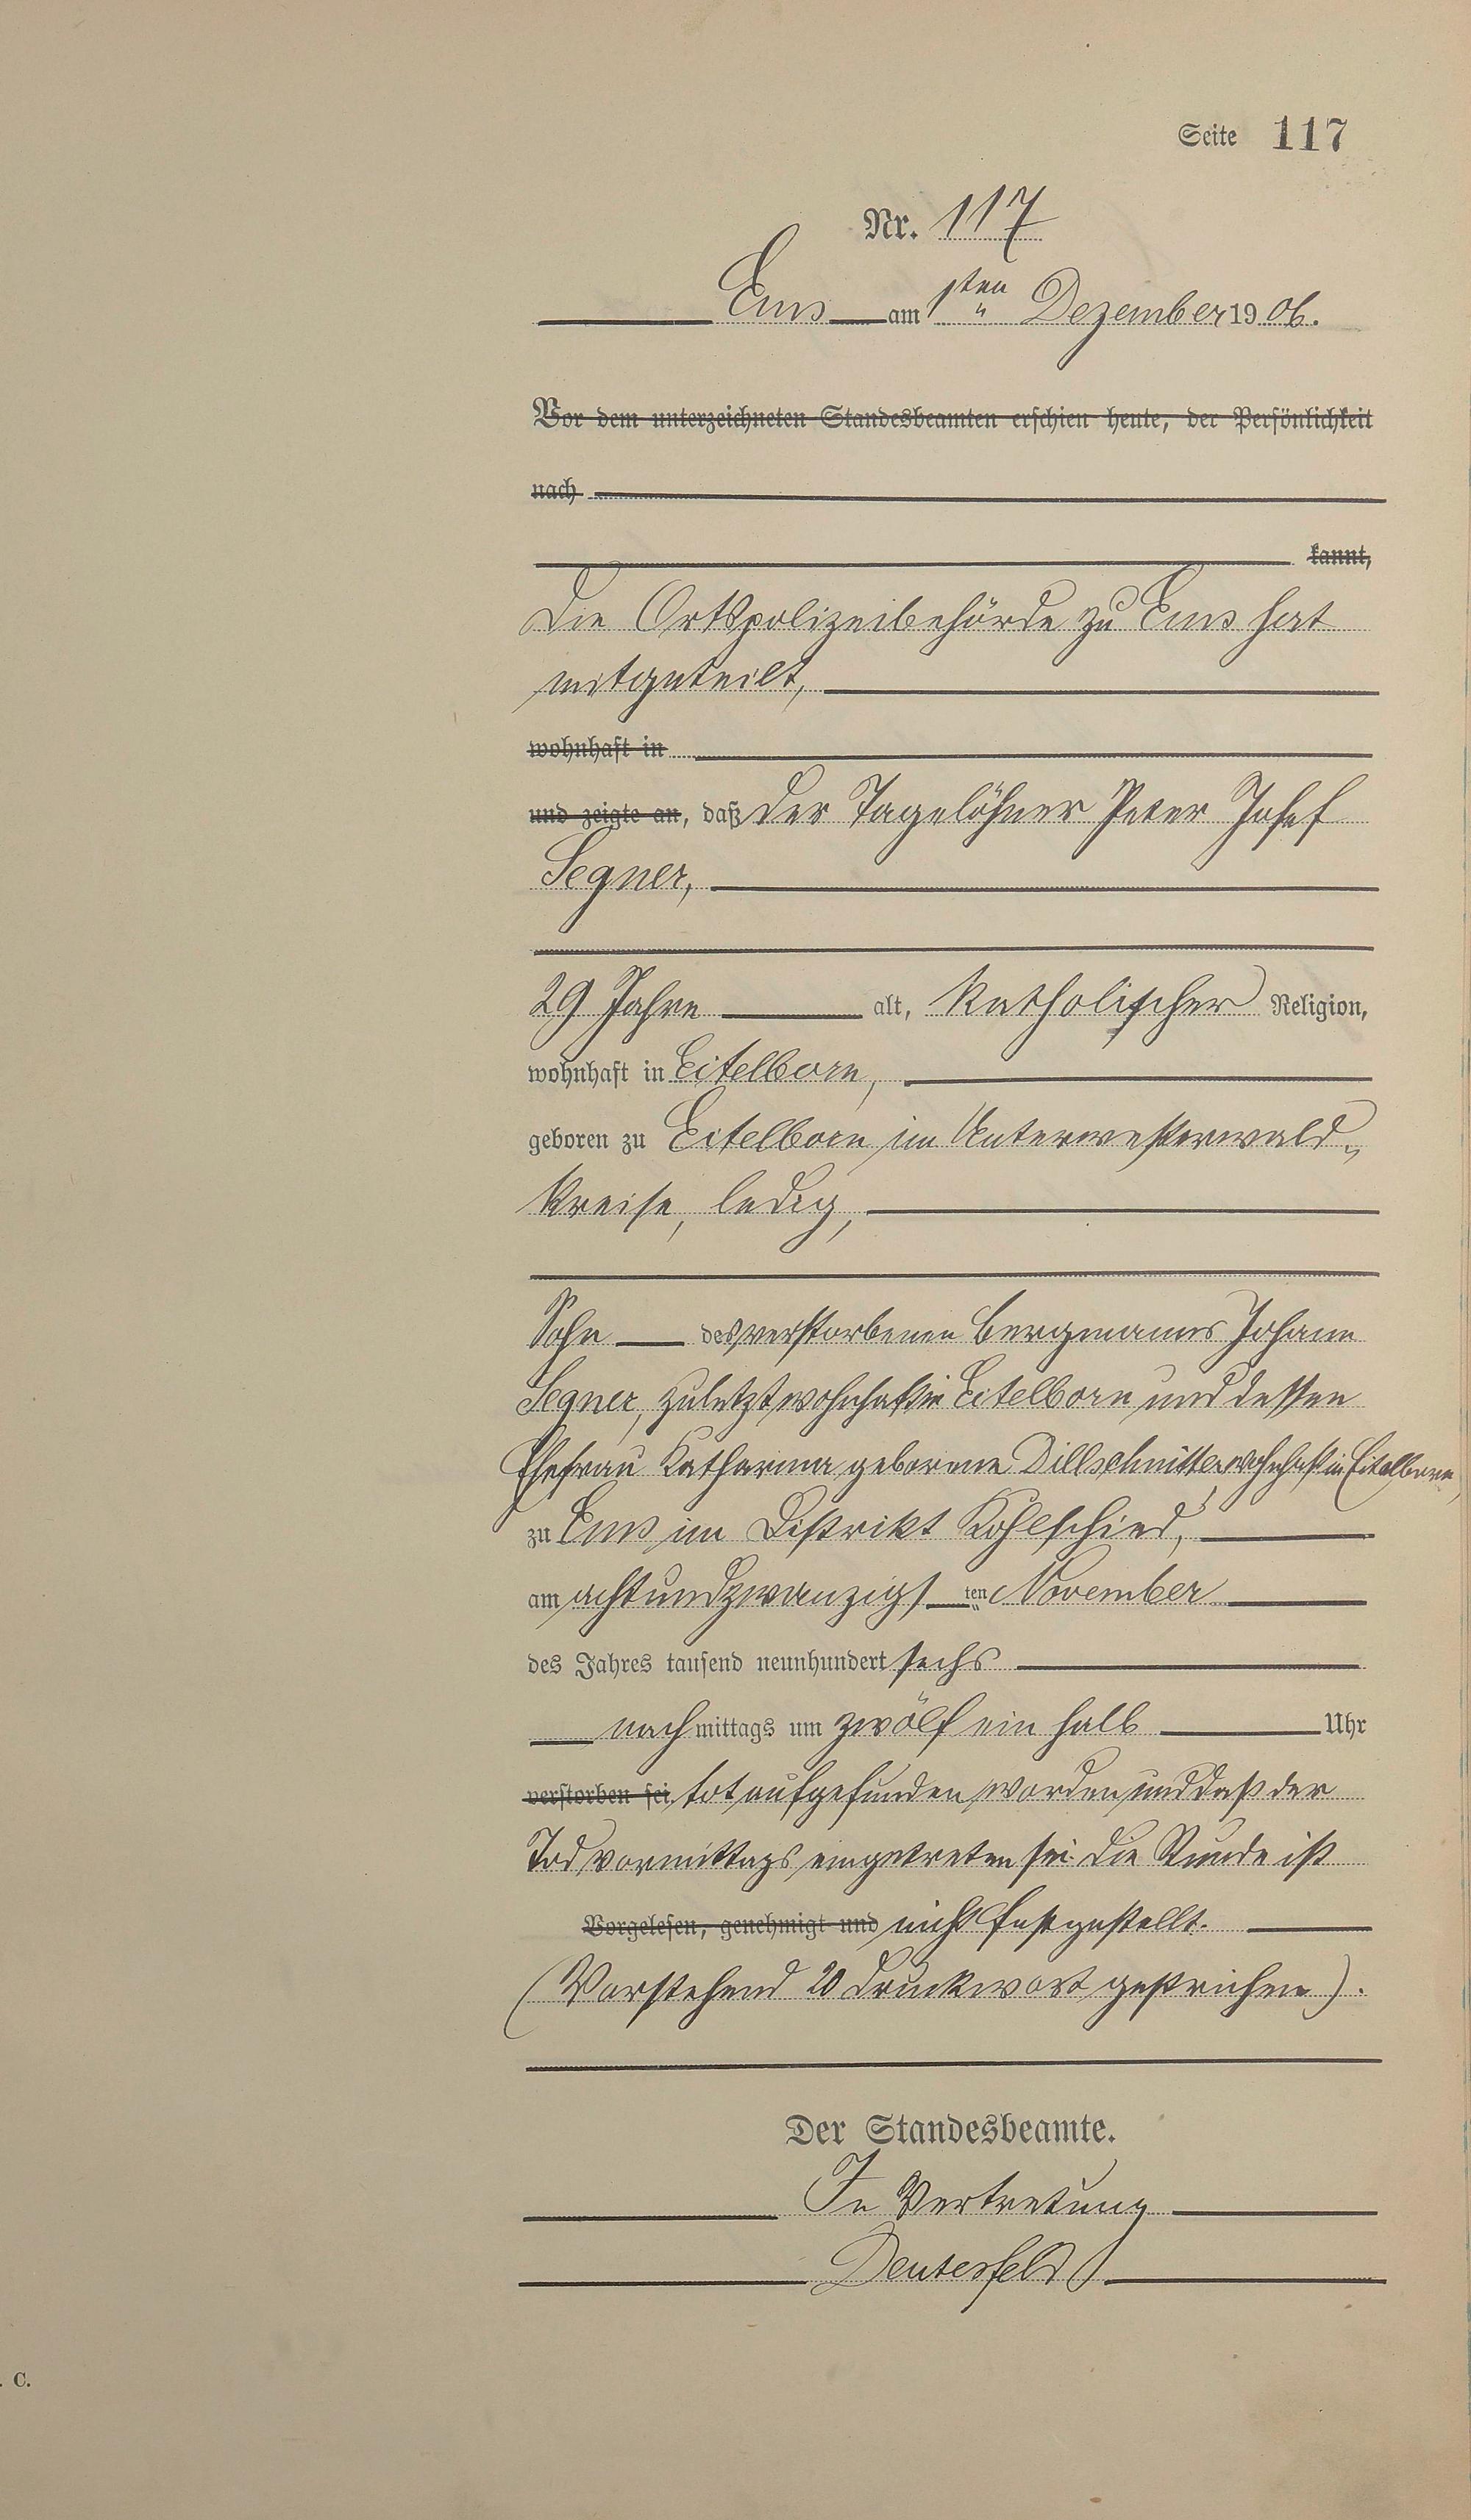 Seite 117
Nr. 117
Ems am 1sten Dezember 1906.
Vor dem unterzeichneten Standesbeamten erschien heute, der Persönlichkeit
nach
kannt,
Die Ortspolizeibehörde zu Ems hat
mitgeteilt,
wohnhaft in
und zeigte an, daß der Tagelöhner Peter Josef
Segner,
29 Jahre alt, katholischer Religion,
wohnhaft in Eitelborn,
geboren zu Eitelborn im Unterwesterwald-
kreise, ledig,
Sohn des verstorbenen Bergmanns Johann
Segner, zuletzt wohnhaft in Eitelborn und dessen
Ehefrau Katharina geborene Dillschnitter, wohnhaft in Eitelborn,
zu Ems im Distrikt Kohlschied,
am achtundzwanzigsten November
des Jahres tausend neunhundert sechs
nachmittags um zwölf ein halb Uhr
verstorben sei tot aufgefunden worden und daß der
Tod vormittags eingetreten sei. Die Stunde ist
Vorgelesen, genehmigt und nicht festgestellt.
(Vorstehend 20 Druckwort gestrichen).
Der Standesbeamte.
In Vertretung
. C.